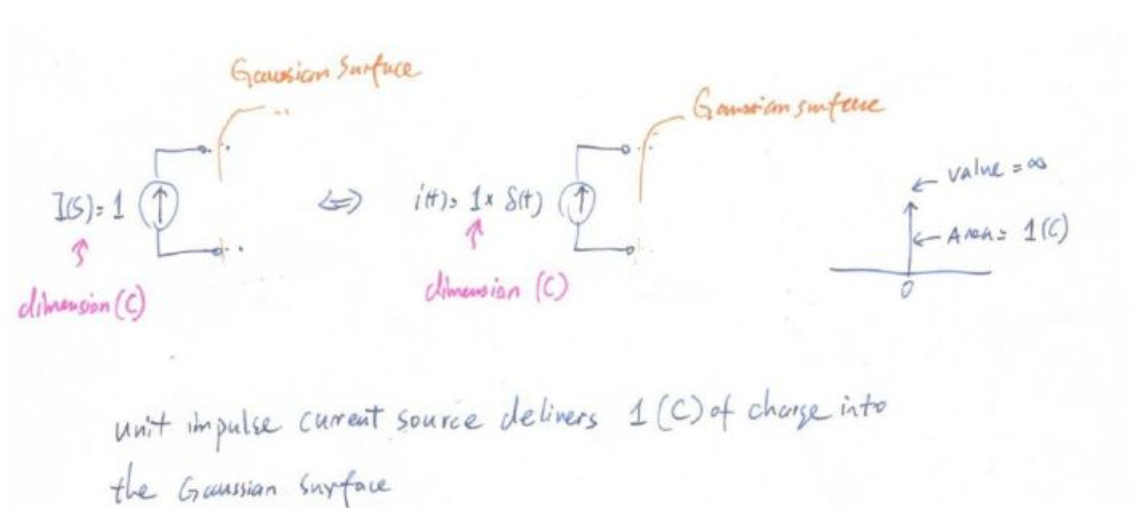 Gaussian Surface
Gaussian surface
I(S)= 1
⇔
i(t)= 1 × δ(t)
← value = ∞
← Area = 1 (C)
0
dimension (C)
dimension (C)
unit impulse current source delivers 1 (C) of charge into
the Gaussian Surface